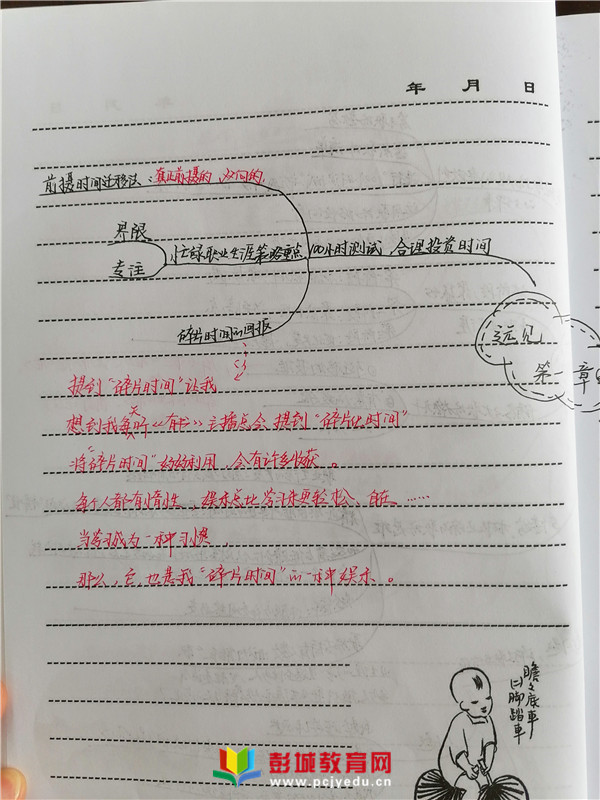 年 月 日
前摄时间迁移法:真正前摄的,双向的
界限
专注
忙碌职业生涯策略重点
100小时测试,合理投资时间
碎片时间的回报
远见
第一章
提到“碎片时间”让我
想到我每天听《有书》主播总会提到“碎片化时间”
将“碎片时间”好好利用,会有许多收获。
每个人都有惰性,娱乐总比学习来更轻松、自在……
当学习成为一种习惯,
那么,它,也是我“碎片时间”的一种娱乐。
瞻之庭車
日脚踏車
彭城教育网
www.pcjyedu.cn